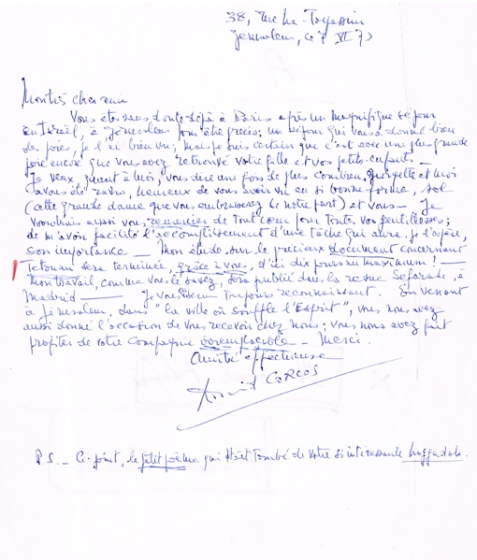 38, rue Ha-
Jerusalem, ce 8 VI 73
Mon très cher ami
Vous êtes sans doute déjà à Paris après un magnifique séjour
en Israël, à Jérusalem pour être précis; un séjour qui vous a donné bien
des joies, je l'ai bien vu; mais je suis certain que c'est avec une plus grande
joie encore que vous avez retrouvé votre fille et vos petits-enfants —
Je veux, quant à moi, vous dire une fois de plus combien Georgette et moi
avons été ravis, heureux de vous avoir vu en si bonne forme, Sol
(cette grande dame que vous embrasserez de notre part) et vous — Je
voudrais aussi vous remercier de tout coeur pour toutes vos gentillesses;
de m'avoir facilité l'accomplissement d'une tâche qui aura, je l'espère,
son importance — Mon étude sur le précieux document concernant
Tetouan sera terminée, grâce à vous, d'ici dix jours au maximum! —
Mon travail, comme vous le savez, sera publié dans la revue Sefarad, à
Madrid — Je vous en toujours reconnaissant. En venant
à Jérusalem, dans "la ville où souffle l'Esprit", vous nous avez
aussi donné l'occasion de vous recevoir chez nous; vous nous avez fait
profiter de votre compagnie — Merci.
Amitié affectueuse
David CORCOS
P.S. — Ci-joint, le petit poème qui était tombé de votre si intéressante haggadah.